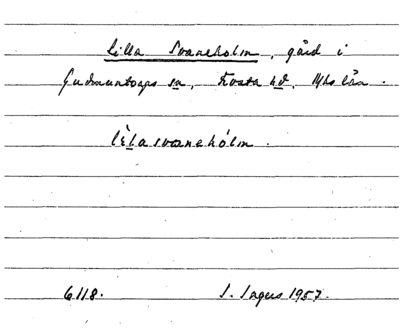 Lilla Svaneholm, gård i
Gudmuntorps sn, Frosta hd, Mhs län.
lìlasvanehólm.
6118. I. Ingers 1957.